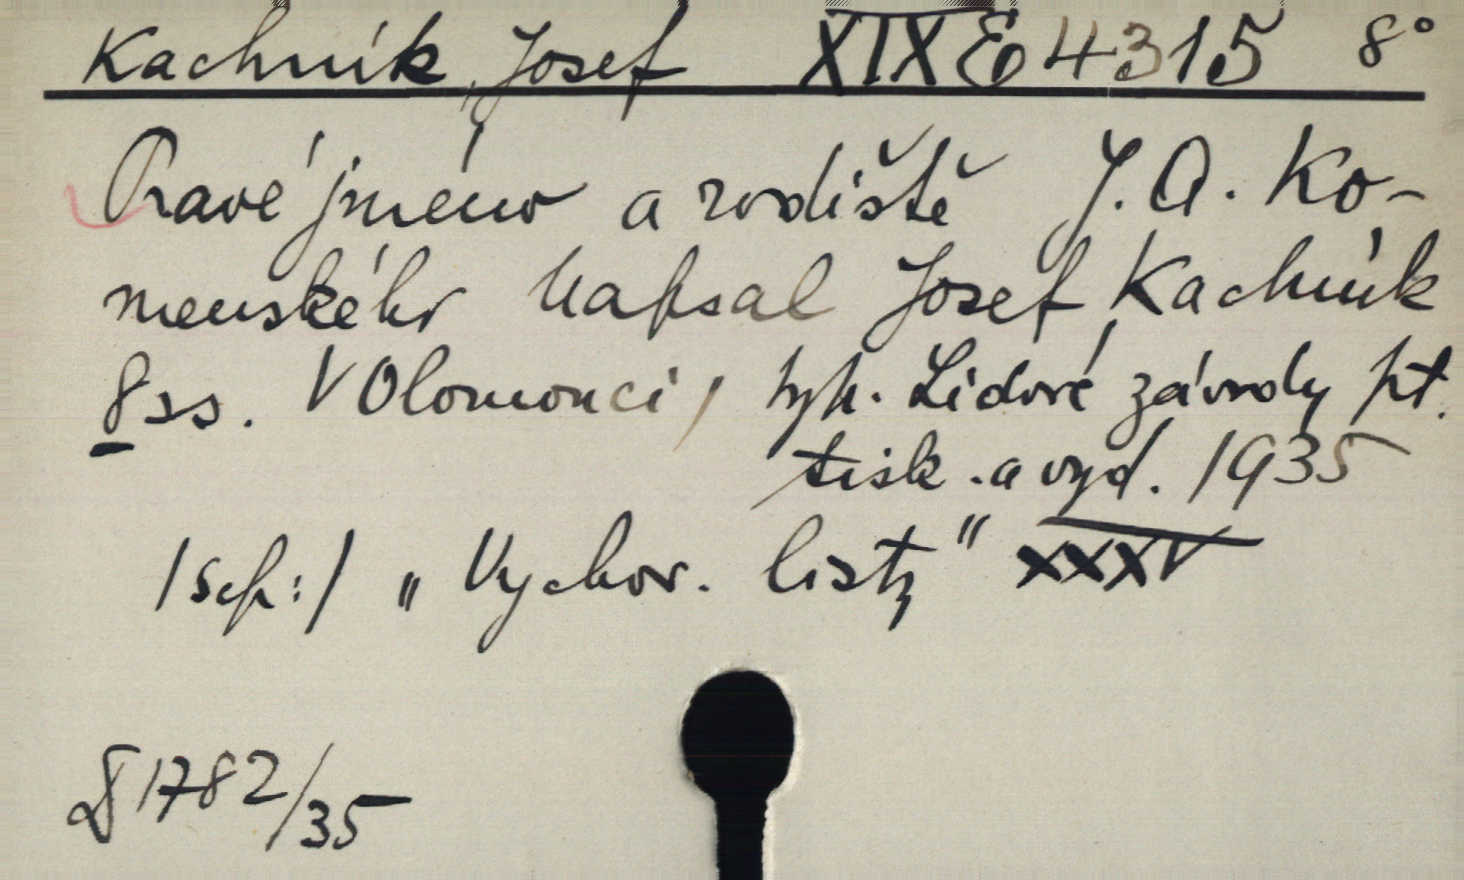 Kachník, Josef XIX E 4315 8°
Pravé jméno a rodiště J. A. Ko-
menského Napsal Josef Kachník
8 ss. V Olomouci, typ. Lidové závody
tisk. a vyd. 1935
/sep:/ „Vychov. listy" XXXV
1782/35